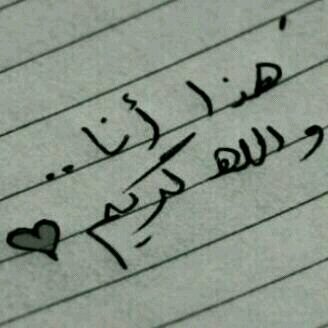 هذا أنا..
والله كريم ♥